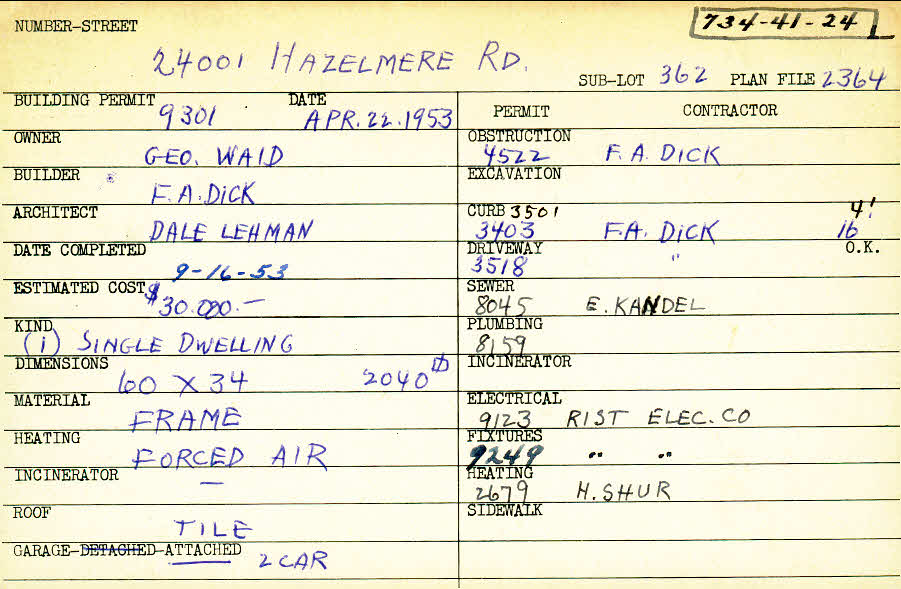 NUMBER-STREET 734-41-24
24001 HAZELMERE RD.
SUB-LOT 362 PLAN FILE 2364
BUILDING PERMIT DATE
9301 APR. 22. 1953
OWNER
GEO. WAID
BUILDER
F. A. DICK
ARCHITECT
DALE LEHMAN
DATE COMPLETED
9-16-53
ESTIMATED COST
$30.000.—
KIND
(1) SINGLE DWELLING
DIMENSIONS
60 X 34 2040
MATERIAL
FRAME
HEATING
FORCED AIR
INCINERATOR
—
ROOF
TILE
GARAGE-DETACHED-ATTACHED
2 CAR
PERMIT CONTRACTOR
OBSTRUCTION
4522 F. A. DICK
EXCAVATION
CURB 3501 4!
3403 F.A. DICK 16
DRIVEWAY O.K.
3518 "
SEWER
8045 E. KANDEL
PLUMBING
8159
INCINERATOR
ELECTRICAL
9123 RIST ELEC. CO
FIXTURES
9249 " "
HEATING
2679 H. SHUR
SIDEWALK